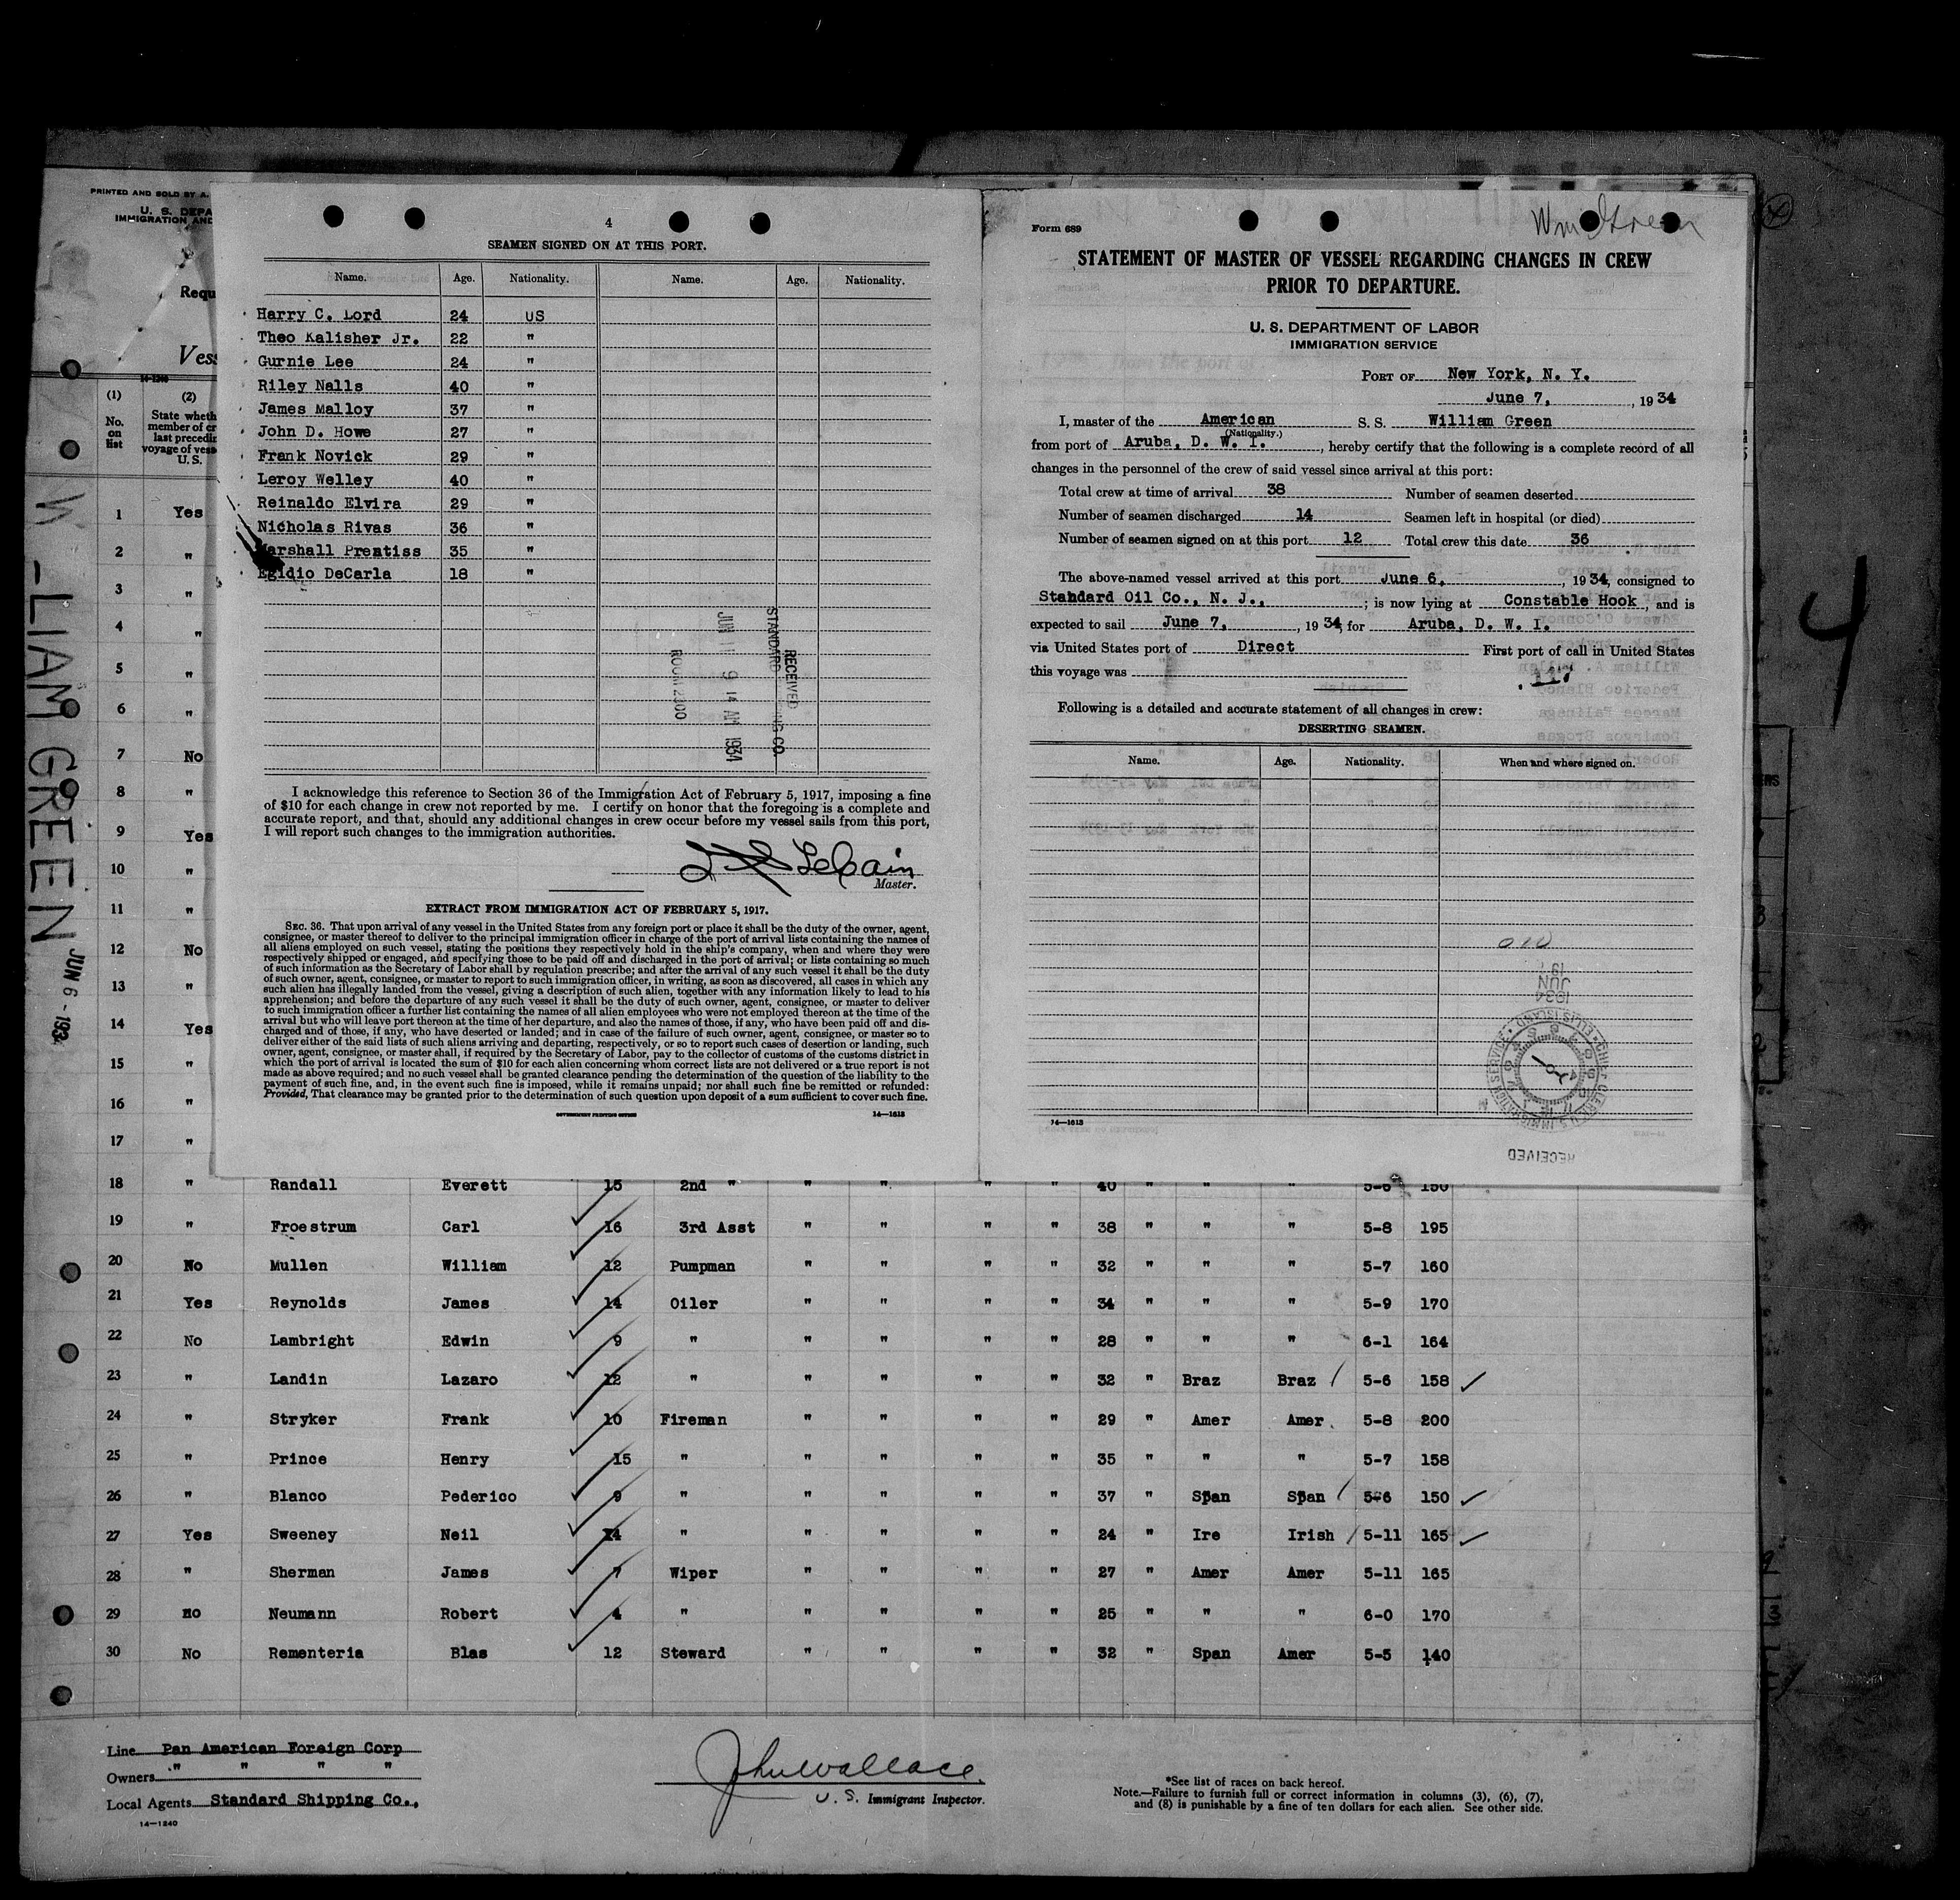 PRINTED AND SOLD BY A.
U. S. DEPA
IMMIGRATION AND
Requ
Vess
14-1240
(1) (2)
No. on list
State wheth
member of cr
last precedin
voyage of vess
U. S.
1 Yes
2 "
3 "
4 "
5 "
6 "
7 No
8 "
9 Yes
10 "
11 "
12 No
13 "
14 Yes
15 "
16 "
17 "
LIAM GREEN
JUN 6 - 193
4
SEAMEN SIGNED ON AT THIS PORT.
Name. Age. Nationality. Name. Age. Nationality.
Harry C. Lord 24 US
Theo Kalisher Jr. 22 "
Gurnie Lee 24 "
Riley Nalls 40 "
James Malloy 37 "
John D. Howe 27 "
Frank Novick 29 "
Leroy Welley 40 "
Reinaldo Elvira 29 "
Nicholas Rivas 36 "
Marshall Prentiss 35 "
Egidio DeCarla 18 "
RECEIVED
STANDARD NG CO.
JUN 11 9 14 AM 1934
ROOM 2300
I acknowledge this reference to Section 36 of the Immigration Act of February 5, 1917, imposing a fine
of $10 for each change in crew not reported by me. I certify on honor that the foregoing is a complete and
accurate report, and that, should any additional changes in crew occur before my vessel sails from this port,
I will report such changes to the immigration authorities.
LeCain
Master.
EXTRACT FROM IMMIGRATION ACT OF FEBRUARY 5, 1917.
SEC. 36. That upon arrival of any vessel in the United States from any foreign port or place it shall be the duty of the owner, agent,
consignee, or master thereof to deliver to the principal immigration officer in charge of the port of arrival lists containing the names of
all aliens employed on such vessel, stating the positions they respectively hold in the ship's company, when and where they were
respectively shipped or engaged, and specifying those to be paid off and discharged in the port of arrival; or lists containing so much
of such information as the Secretary of Labor shall by regulation prescribe; and after the arrival of any such vessel it shall be the duty
of such owner, agent, consignee, or master to report to such immigration officer, in writing, as soon as discovered, all cases in which any
such alien has illegally landed from the vessel, giving a description of such alien, together with any information likely to lead to his
apprehension; and before the departure of any such vessel it shall be the duty of such owner, agent, consignee, or master to deliver
to such immigration officer a further list containing the names of all alien employees who were not employed thereon at the time of the
arrival but who will leave port thereon at the time of her departure, and also the names of those, if any, who have been paid off and dis-
charged and of those, if any, who have deserted or landed; and in case of the failure of such owner, agent, consignee, or master so to
deliver either of the said lists of such aliens arriving and departing, respectively, or so to report such cases of desertion or landing, such
owner, agent, consignee, or master shall, if required by the Secretary of Labor, pay to the collector of customs of the customs district in
which the port of arrival is located the sum of $10 for each alien concerning whom correct lists are not delivered or a true report is not
made as above required; and no such vessel shall be granted clearance pending the determination of the question of the liability to the
payment of such fine, and, in the event such fine is imposed, while it remains unpaid; nor shall such fine be remitted or refunded:
Provided, That clearance may be granted prior to the determination of such question upon deposit of a sum sufficient to cover such fine.
GOVERNMENT PRINTING OFFICE 14—1613
Form 689
Wm Green
STATEMENT OF MASTER OF VESSEL REGARDING CHANGES IN CREW
PRIOR TO DEPARTURE.
U. S. DEPARTMENT OF LABOR
IMMIGRATION SERVICE
PORT OF New York, N. Y.
June 7, , 1934
I, master of the American S. S. William Green
(Nationality.)
from port of Aruba, D. W. I. , hereby certify that the following is a complete record of all
changes in the personnel of the crew of said vessel since arrival at this port:
Total crew at time of arrival 38 Number of seamen deserted
Number of seamen discharged 14 Seamen left in hospital (or died)
Number of seamen signed on at this port 12 Total crew this date 36
The above-named vessel arrived at this port June 6, , 1934, consigned to
Standard Oil Co., N. J., ; is now lying at Constable Hook , and is
expected to sail June 7, , 1934, for Aruba, D. W. I.
via United States port of Direct First port of call in United States
this voyage was 117
Following is a detailed and accurate statement of all changes in crew:
DESERTING SEAMEN.
Name. Age. Nationality. When and where signed on.
CHIEF CLERK U.S. IMMIGRATION SERVICE ELLIS ISLAND
1934
JUN
RECEIVED
14—1613
4
18 " Randall Everett 15 2nd " " " " " 40 " " " 5-6 150
19 " Froestrum Carl 16 3rd Asst " " " " 38 " " " 5-8 195
20 No Mullen William 12 Pumpman " " " " 32 " " " 5-7 160
21 Yes Reynolds James 14 Oiler " " " " 34 " " " 5-9 170
22 No Lambright Edwin 9 " " " " " 28 " " " 6-1 164
23 " Landin Lazaro 12 " " " " " 32 " Braz Braz 5-6 158
24 " Stryker Frank 10 Fireman " " " " 29 " Amer Amer 5-8 200
25 " Prince Henry 15 " " " " " 35 " " " 5-7 158
26 " Blanco Pederico 9 " " " " " 37 " Span Span 5-6 150
27 Yes Sweeney Neil 14 " " " " " 24 " Ire Irish 5-11 165
28 " Sherman James 7 Wiper " " " " 27 " Amer Amer 5-11 165
29 No Neumann Robert 4 " " " " " 25 " " " 6-0 170
30 No Rementeria Blas 12 Steward " " " " 32 " Span Amer 5-5 140
Line Pan American Foreign Corp
Owners " " " "
Local Agents Standard Shipping Co.,
14—1240
John Wallace
U. S. Immigrant Inspector.
*See list of races on back hereof.
Note.—Failure to furnish full or correct information in columns (3), (6), (7),
and (8) is punishable by a fine of ten dollars for each alien. See other side.